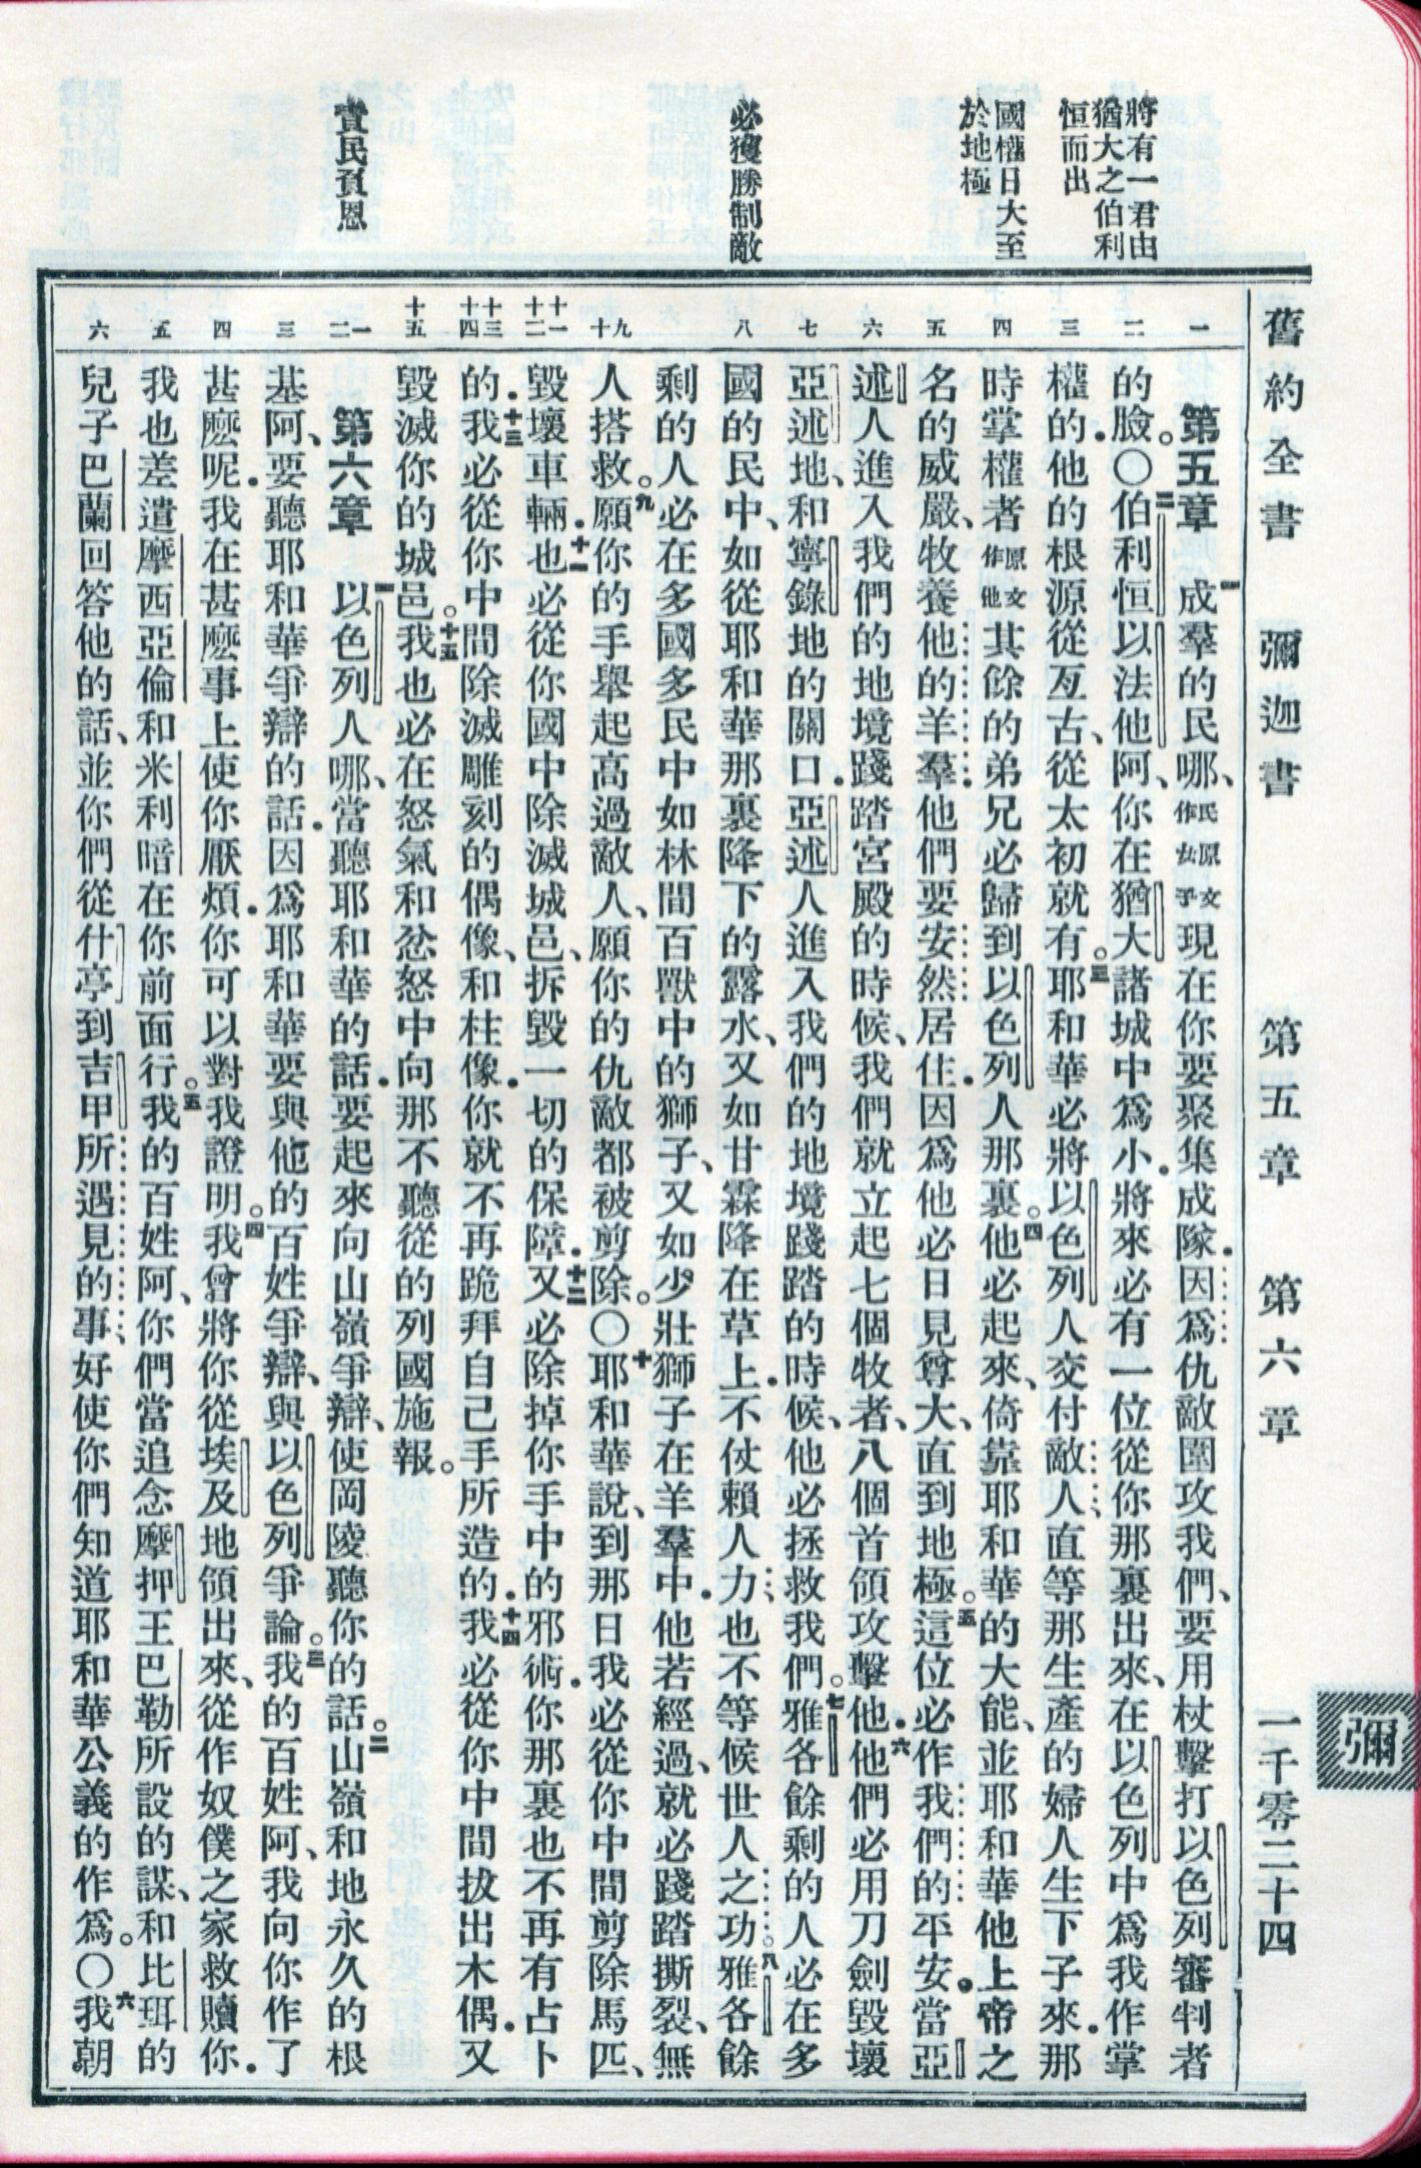 舊約全書　彌迦書　第五章　第六章　一千零二十四
彌
將有一君由
猶大之伯利
恒而出
國權日大至
於地極
必獲勝制敵
責民負恩
一
二
三
四
五
六
七
八
九
十
十一
十二
十三
十四
十五
一
二
三
四
五
六
第五章　一成羣的民哪、民原文作女子現在你要聚集成隊．因爲仇敵圍攻我們、要用杖擊打以色列審判者
的臉。〇二伯利恒以法他阿、你在猶大諸城中爲小．將來必有一位從你那裏出來、在以色列中爲我作掌
權的．他的根源從亙古、從太初就有。三耶和華必將以色列人交付敵人、直等那生產的婦人生下子來．那
時掌權者原文作他其餘的弟兄必歸到以色列人那裏。四他必起來、倚靠耶和華的大能、並耶和華他上帝之
名的威嚴、牧養他的羊羣．他們要安然居住．因爲他必日見尊大、直到地極。五這位必作我們的平安．當亞
述人進入我們的地境踐踏宮殿的時候、我們就立起七個牧者、八個首領攻擊他．六他們必用刀劍毀壞
亞述地、和寧錄地的關口．亞述人進入我們的地境踐踏的時候、他必拯救我們。七雅各餘剩的人必在多
國的民中、如從耶和華那裏降下的露水、又如甘霖降在草上．不仗賴人力、也不等候世人之功。八雅各餘
剩的人必在多國多民中如林間百獸中的獅子、又如少壯獅子在羊羣中．他若經過、就必踐踏撕裂、無
人搭救。九願你的手舉起高過敵人、願你的仇敵都被剪除。〇十耶和華說、到那日我必從你中間剪除馬匹、
毀壞車輛．十一也必從你國中除滅城邑、拆毀一切的保障．十二又必除掉你手中的邪術．你那裏也不再有占卜
的．十三我必從你中間除滅雕刻的偶像、和柱像．你就不再跪拜自己手所造的．十四我必從你中間拔出木偶．又
毀滅你的城邑。十五我也必在怒氣和忿怒中向那不聽從的列國施報。
第六章　一以色列人哪、當聽耶和華的話．要起來向山嶺爭辯、使岡陵聽你的話。二山嶺和地永久的根
基阿、要聽耶和華爭辯的話．因爲耶和華要與他的百姓爭辯、與以色列爭論。三我的百姓阿、我向你作了
甚麼呢．我在甚麼事上使你厭煩．你可以對我證明。四我曾將你從埃及地領出來、從作奴僕之家救贖你．
我也差遣摩西亞倫和米利暗在你前面行。五我的百姓阿、你們當追念摩押王巴勒所設的謀、和比珥的
兒子巴蘭回答他的話、並你們從什亭到吉甲所遇見的事、好使你們知道耶和華公義的作爲。〇六我朝